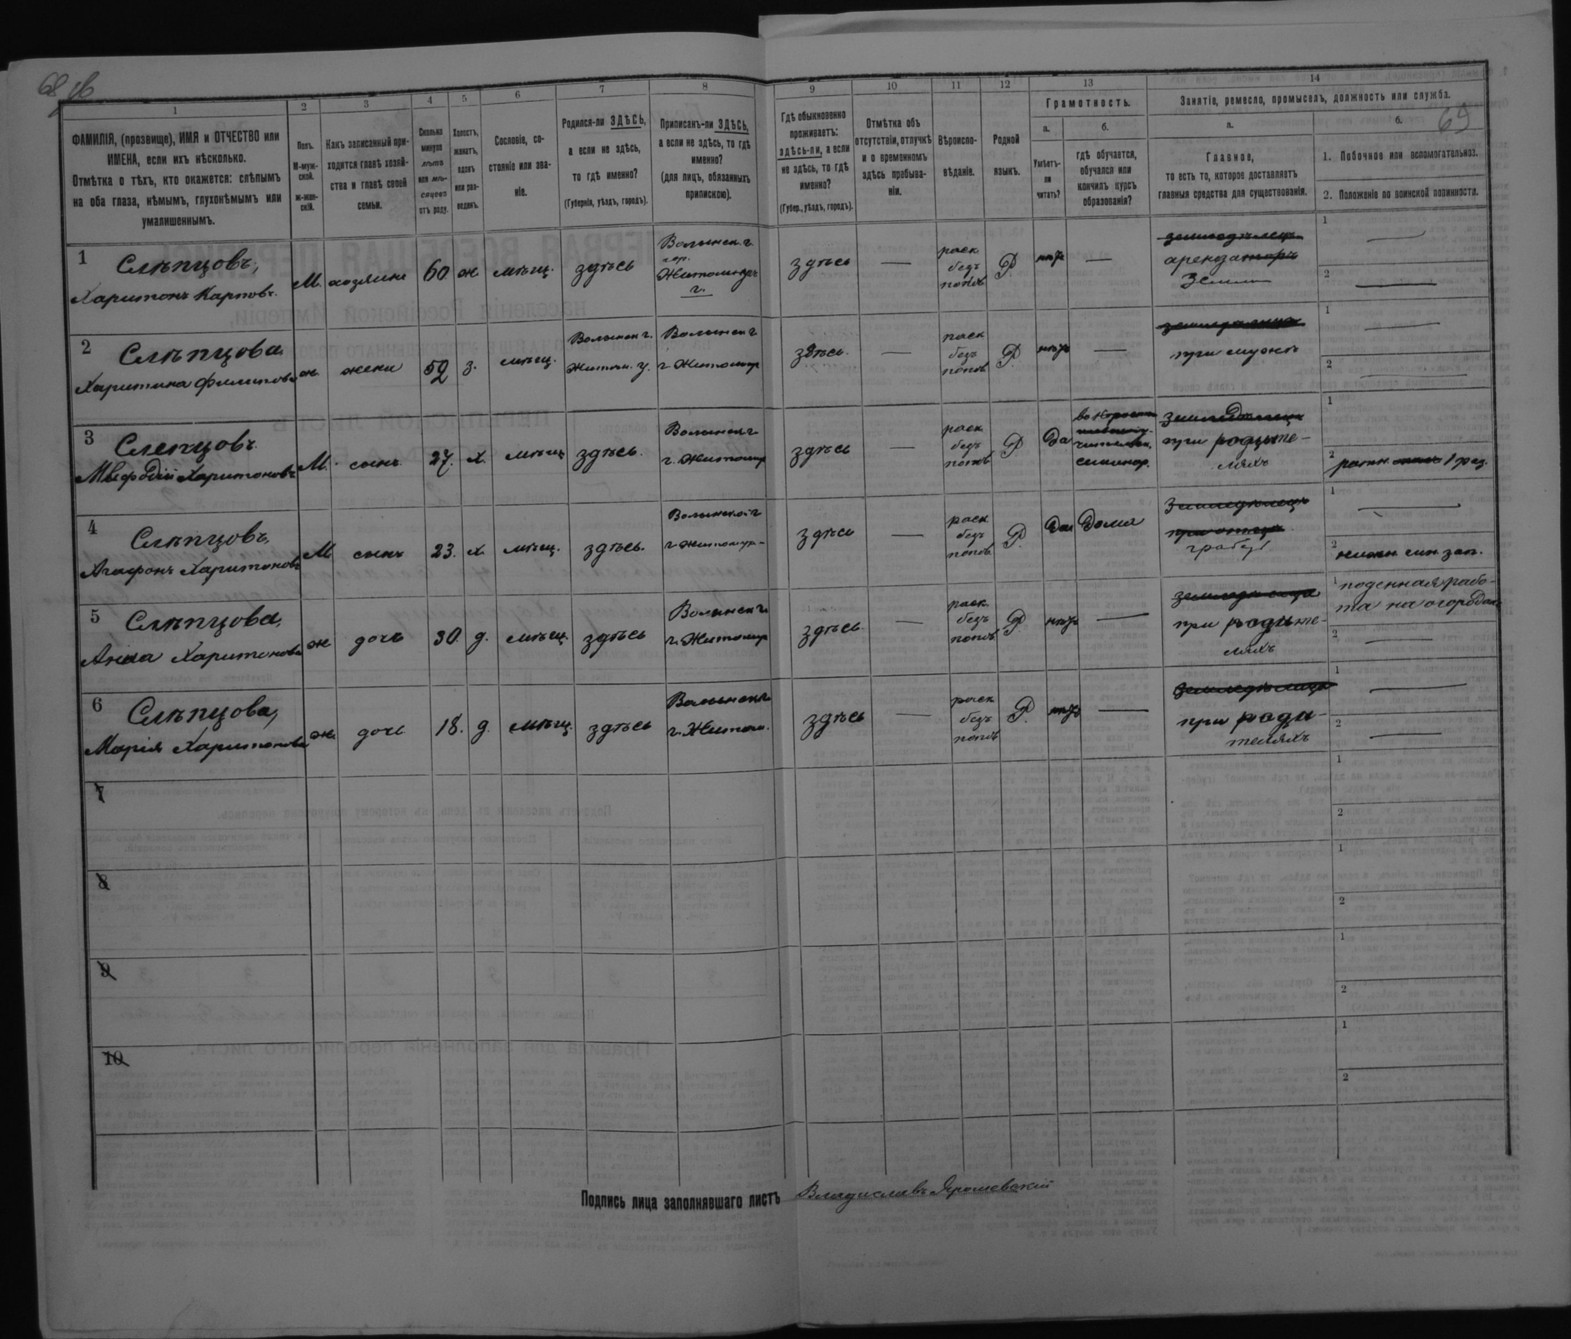 68 об
69
1
2
3
4
5
6
7
8
9
10
11
12
13
14
ФАМИЛІЯ, (прозвище), ИМЯ и ОТЧЕСТВО или
ИМЕНА, если ихъ нѣсколько.
Отмѣтка о тѣхъ, кто окажется: слѣпымъ
на оба глаза, нѣмымъ, глухонѣмымъ или
умалишеннымъ.
Полъ.
М-муж-
ской.
Ж-жен-
скій.
Какъ записанный при-
ходится главѣ хозяй-
ства и главѣ своей
семьи.
Сколько
минуло
лѣтъ
или мѣ-
сяцевъ
отъ роду.
Холостъ,
женатъ,
вдовъ
или раз-
веденъ.
Сословіе, со-
стояніе или зва-
ніе.
Родился-ли ЗДѢСЬ,
а если не здѣсь,
то гдѣ именно?
(Губернія, уѣздъ, городъ).
Приписанъ-ли ЗДѢСЬ,
а если не здѣсь, то гдѣ
именно?
(для лицъ, обязанныхъ
припискою).
Гдѣ обыкновенно
проживаетъ:
здѣсь-ли, а если
не здѣсь, то гдѣ
именно?
(Губер., уѣздъ, городъ).
Отмѣтка объ
отсутствіи, отлучкѣ
и о временномъ
здѣсь пребыва-
ніи.
Вѣроиспо-
вѣданіе.
Родной
языкъ.
Грамотность.
а.
Умѣетъ-
ли
читать?
б.
гдѣ обучается,
обучался или
кончилъ курсъ
образованія?
Занятіе, ремесло, промыселъ, должность или служба.
а.
Главное,
то есть то, которое доставляетъ
главныя средства для существованія.
б.
1. Побочное или вспомогательное.
2. Положеніе по воинской повинности.
1
Слѣпцовъ,
Харитонъ Карповъ.
М.
хозяинъ
60
ж
мѣщ.
здѣсь
Волынск. г.
гор.
Житомиръ
г.
здѣсь
—
раск
безъ
попов
Р
нѣтъ
—
земледѣлецъ
арендаторъ
земли
1 —
2 —
2
Слѣпцова
Харитина Филипова
ж
жена
52
з.
мѣщ.
Волынск г.
Житом. у.
Волынск г
г Житомир
здѣсь.
—
раск
безъ
попов
Р.
нѣтъ
—
при мужѣ
1 —
2 —
3
Слепцовъ
Мефодій Харитоновъ
М.
сынъ
27.
х.
мѣщ
здѣсь.
Волынск г
г. Житомир
здѣсь
—
раск
безъ
попов
Р
Да
учительск.
семинар.
при родите-
ляхъ
1
2
4
Слѣпцовъ,
Агафонъ Харитоновъ
М
сынъ
23.
х.
мѣщ.
здѣсь.
Волынской г
г Житомир-
здѣсь
—
раск
безъ
попов
Р.
Да
Дома
земледѣлецъ
при отцѣ
1 —
2
5
Слѣпцова,
Анна Харитонова
ж
дочь
30.
д.
мѣщ.
здѣсь
Волынск г
г. Житомир
здѣсь.
—
раск.
безъ
попов
Р
нѣтъ
—
при родите-
ляхъ
1 поденная рабо-
та на огородахъ
2 —
6
Слѣпцова,
Марія Харитонова
ж
дочь
18.
д.
мѣщ.
здѣсь
Волынск г
г. Житом.
здѣсь
—
раск
безъ
попов
Р.
нѣтъ
—
при роди-
теляхъ
1 —
2 —
7
1
2
8
1
2
9
1
2
10
1
2
Подпись лица заполнявшаго листъ Владиславъ Ярошевскій